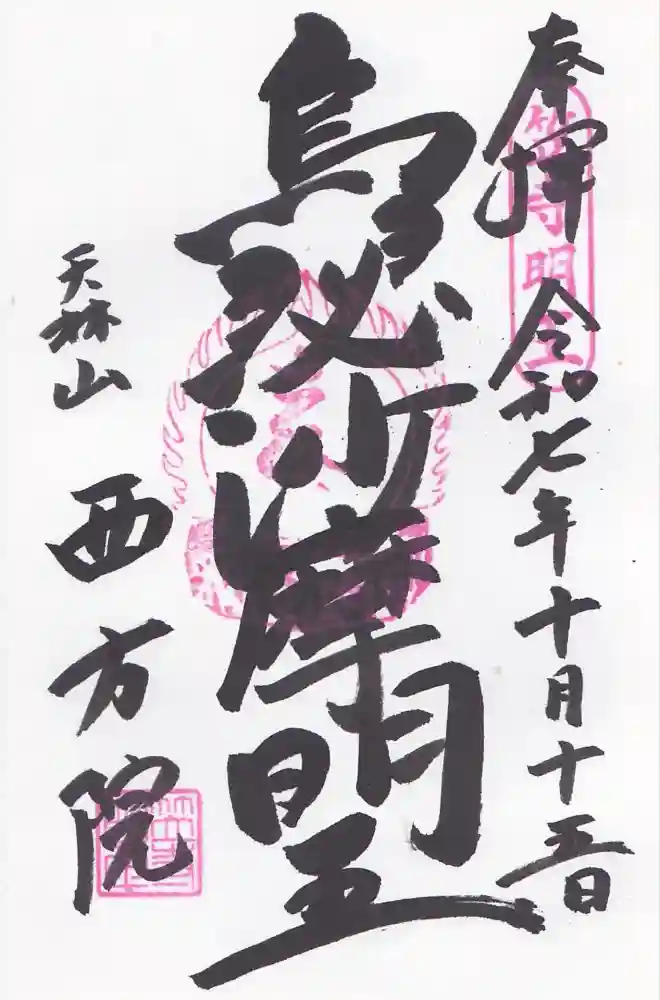 奉拝 令和七年十月十五日
笠寺明王
烏沙摩明王
天林山 西方院